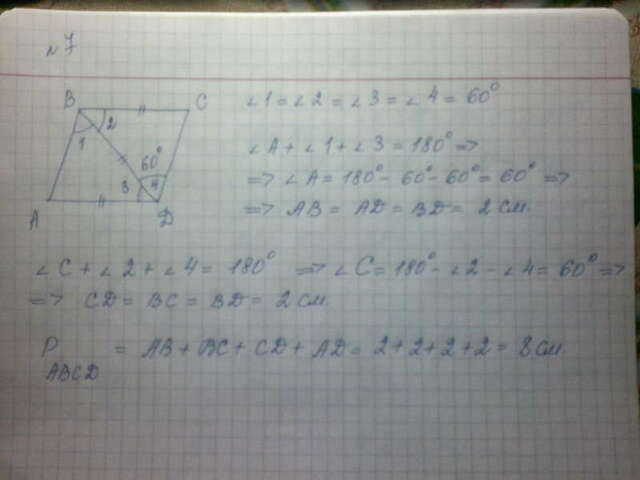 № 7
B C
1 2
60°
3 4
A D
∠1 = ∠2 = ∠3 = ∠4 = 60°
∠A + ∠1 + ∠3 = 180° =>
=> ∠A = 180° - 60° - 60° = 60° =>
=> AB = AD = BD = 2 см.
∠C + ∠2 + ∠4 = 180° => ∠C = 180° - ∠2 - ∠4 = 60° =>
=> CD = BC = BD = 2 см
P ABCD = AB + BC + CD + AD = 2+2+2+2 = 8 см.